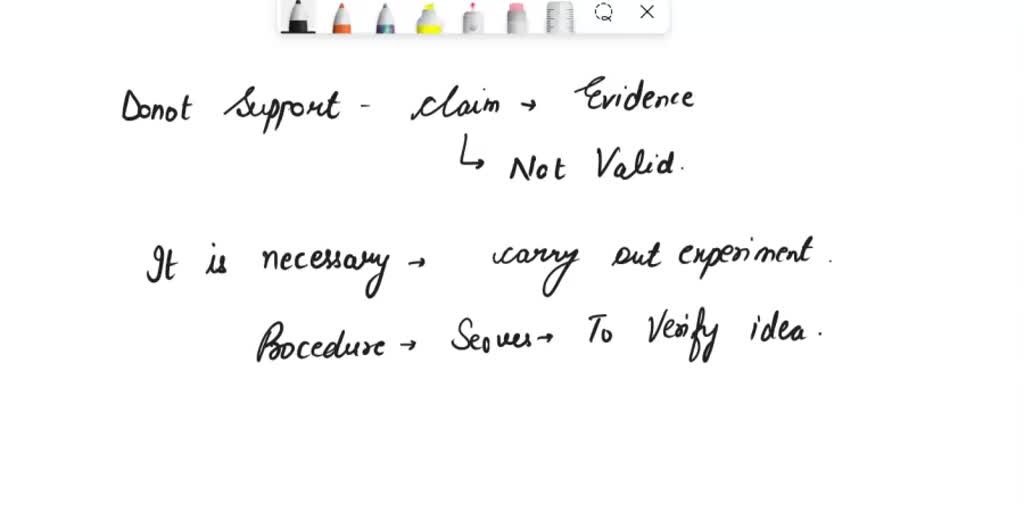 Donot Support - Claim → Evidence
↳ Not Valid.
It is necessary → carry out experiment.
Procedure → Serves → To Verify idea.